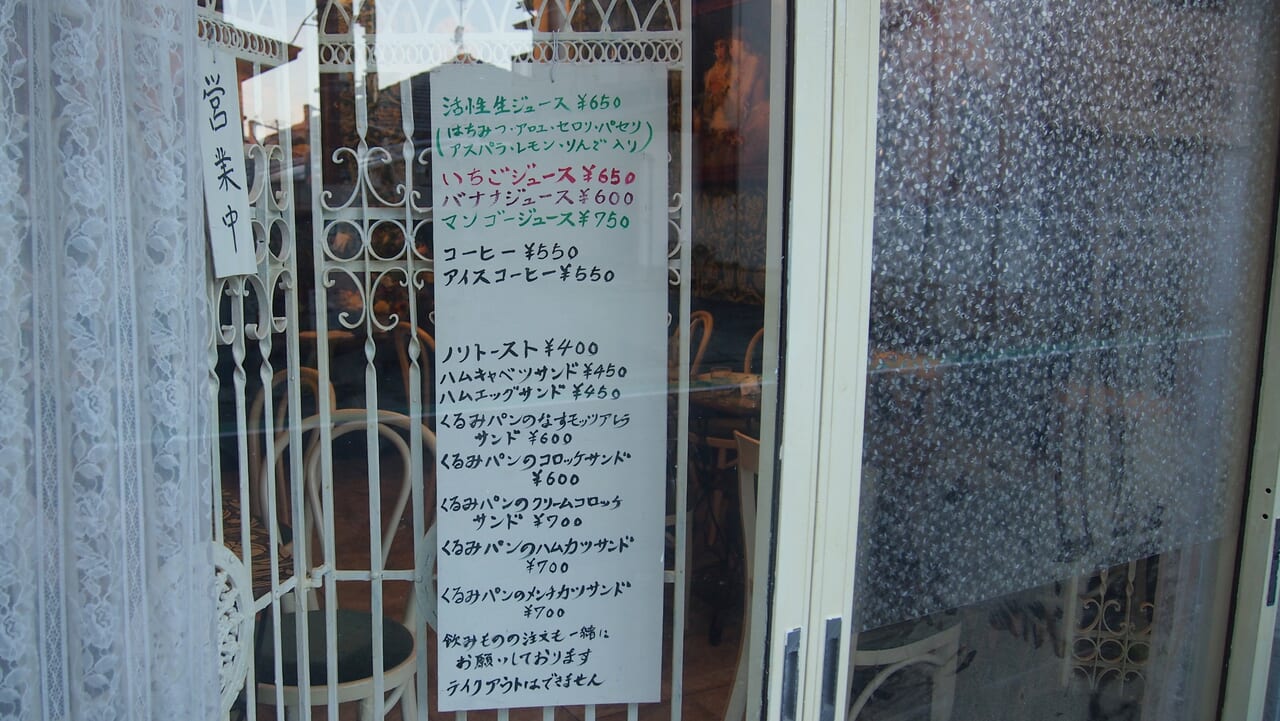 営業中
活性生ジュース ¥650
(はちみつ・アロエ・セロリ・パセリ
アスパラ・レモン・りんご入り)
いちごジュース ¥650
バナナジュース ¥600
マンゴージュース ¥750
コーヒー ¥550
アイスコーヒー ¥550
ノリトースト ¥400
ハムキャベツサンド ¥450
ハムエッグサンド ¥450
くるみパンのなすモッツアレラ
サンド ¥600
くるみパンのコロッケサンド
¥600
くるみパンのクリームコロッケ
サンド ¥700
くるみパンのハムカツサンド
¥700
くるみパンのメンチカツサンド
¥700
飲みものの注文も一緒に
お願いしております
テイクアウトはできません